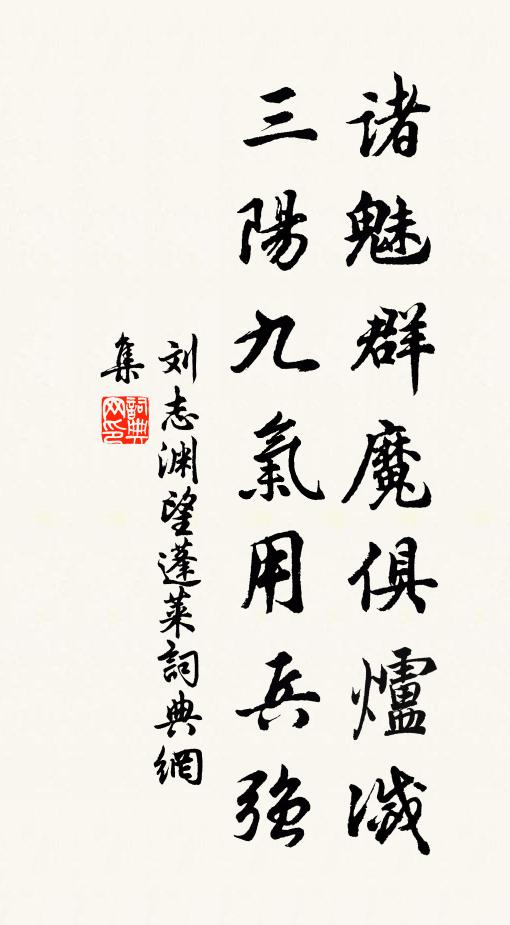 诸魅群魔俱爐滅
三陽九氣用兵強
刘志渊望蓬莱詞典網
集
詞典網印